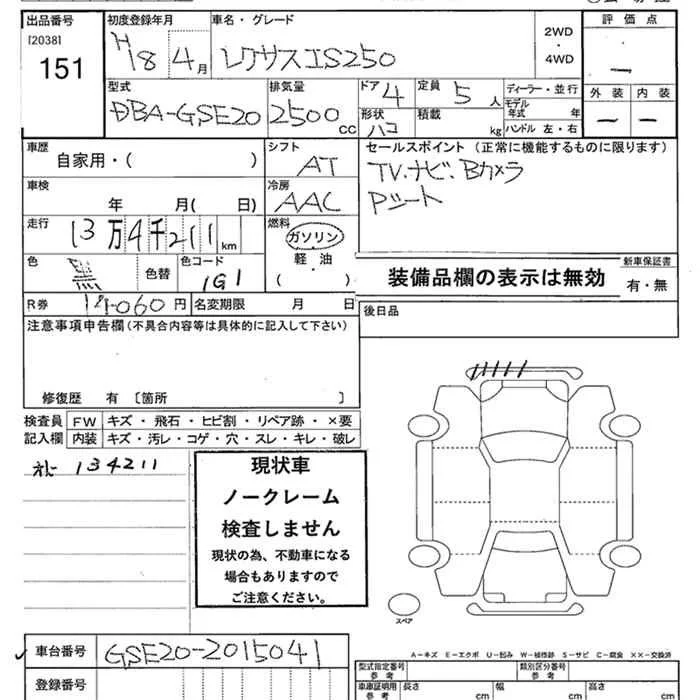 出品番号 初度登録年月 車名・グレード 評価点
[2038] H18 4月 レクサスIS250 2WD ・ 4WD ー
151
型式 排気量 ドア 4 定員 5 人 ディーラー・並行 外装 内装
DBA-GSE20 2500 CC 形状 ハコ 積載 kg モデル年式 年 ー ー
ハンドル 左・右
車歴 シフト セールスポイント (正常に機能するものに限ります)
自家用・( ) AT TV.ナビ.Bカメラ
車検 冷房 Pシート
年 月( 日) AAC
走行 燃料
13万4千211km ガソリン
色 色コード 軽油 新車保証書
黒 色替 1G1 ・ ( ) 装備品欄の表示は無効 有・無
R券 円 名変期限 月 日 後日品
注意事項申告欄(不具合内容等は具体的に記入して下さい)
修復歴 有 〔箇所 〕
検査員 FW キズ・飛石・ヒビ割・リペア跡・×要
記入欄 内装 キズ・汚レ・コゲ・穴・スレ・キレ・破レ
134211
現状車
ノークレーム
検査しません
現状の為、不動車になる
場合もありますので
ご注意ください。
スペア
A-キズ E-エクボ U-凹み W-補修跡 S-サビ C-腐食 ××-交換済
車台番号 GSE20-2015041
型式指定番号 参考 類別区分番号 参考
登録番号 車庫証明用 参考 長さ cm 幅 cm 高さ cm